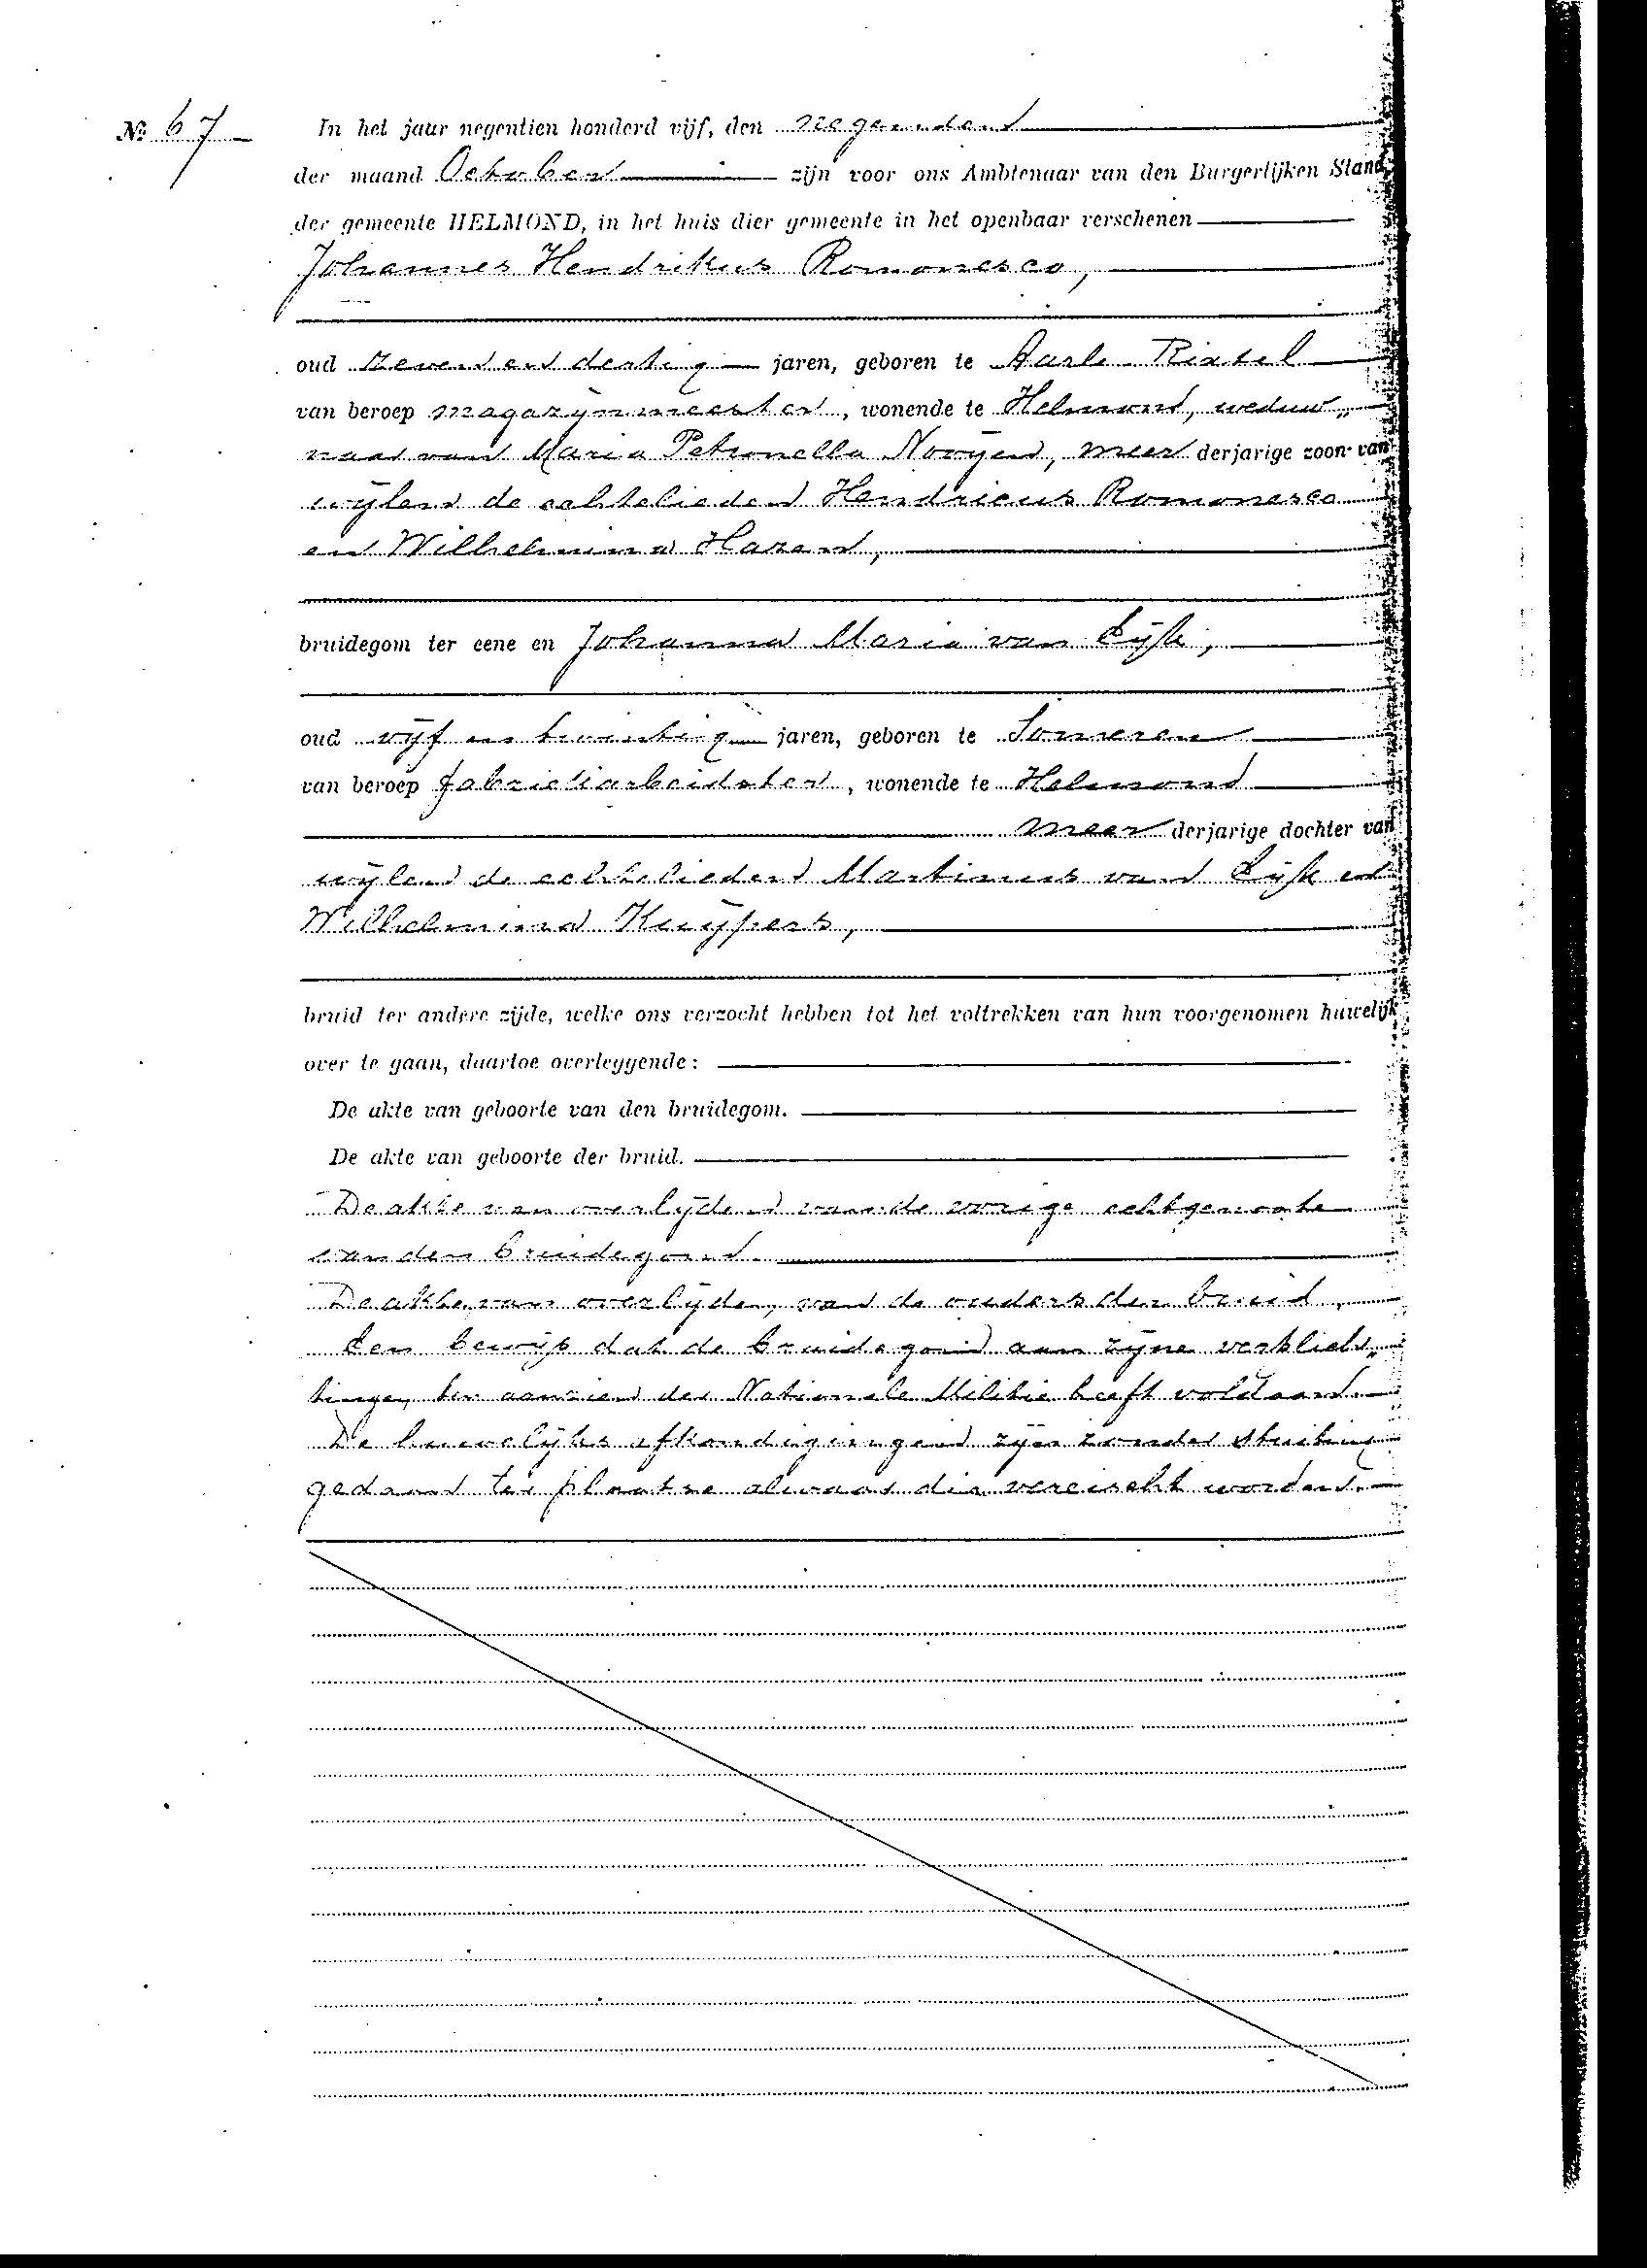 No 67
In het jaar negentien honderd vijf, den negenden
der maand October zijn voor ons Ambtenaar van den Burgerlijken Stand
der gemeente HELMOND, in het huis dier gemeente in het openbaar verschenen
Johannes Hendrikus Romonesco,
oud zeven en dertig jaren, geboren te Aarle Rixtel
van beroep magazijnmeester, wonende te Helmond, weduw„
naar van Maria Petronella Nooyen, meer derjarige zoon van
wijlen de echtelieden Hendricus Romonesco
en Wilhelmina Hazen,
bruidegom ter eene en Johanna Maria van Eijk,
oud vijf en twintig jaren, geboren te Someren
van beroep fabriekarbeidster, wonende te Helmond
meer derjarige dochter van
wijlen de echtelieden Martinus van Eijk en
Wilhelmina Kuijpers,
bruid ter andere zijde, welke ons verzocht hebben tot het voltrekken van hun voorgenomen huwelijk
over te gaan, daartoe overleggende:
De akte van geboorte van den bruidegom.
De akte van geboorte der bruid.
De akte van overlijden van de vorige echtgenoote
van den bruidegom.
De akten van overlijden van de ouders der bruid.
Een bewijs dat de bruidegom aan zijne verplich„
tingen ten aanzien der Nationale Militie heeft voldaan.
De huwelijks afkondigingen zijn zonder stuiting
gedaan ter plaatse alwaar die vereischt worden.